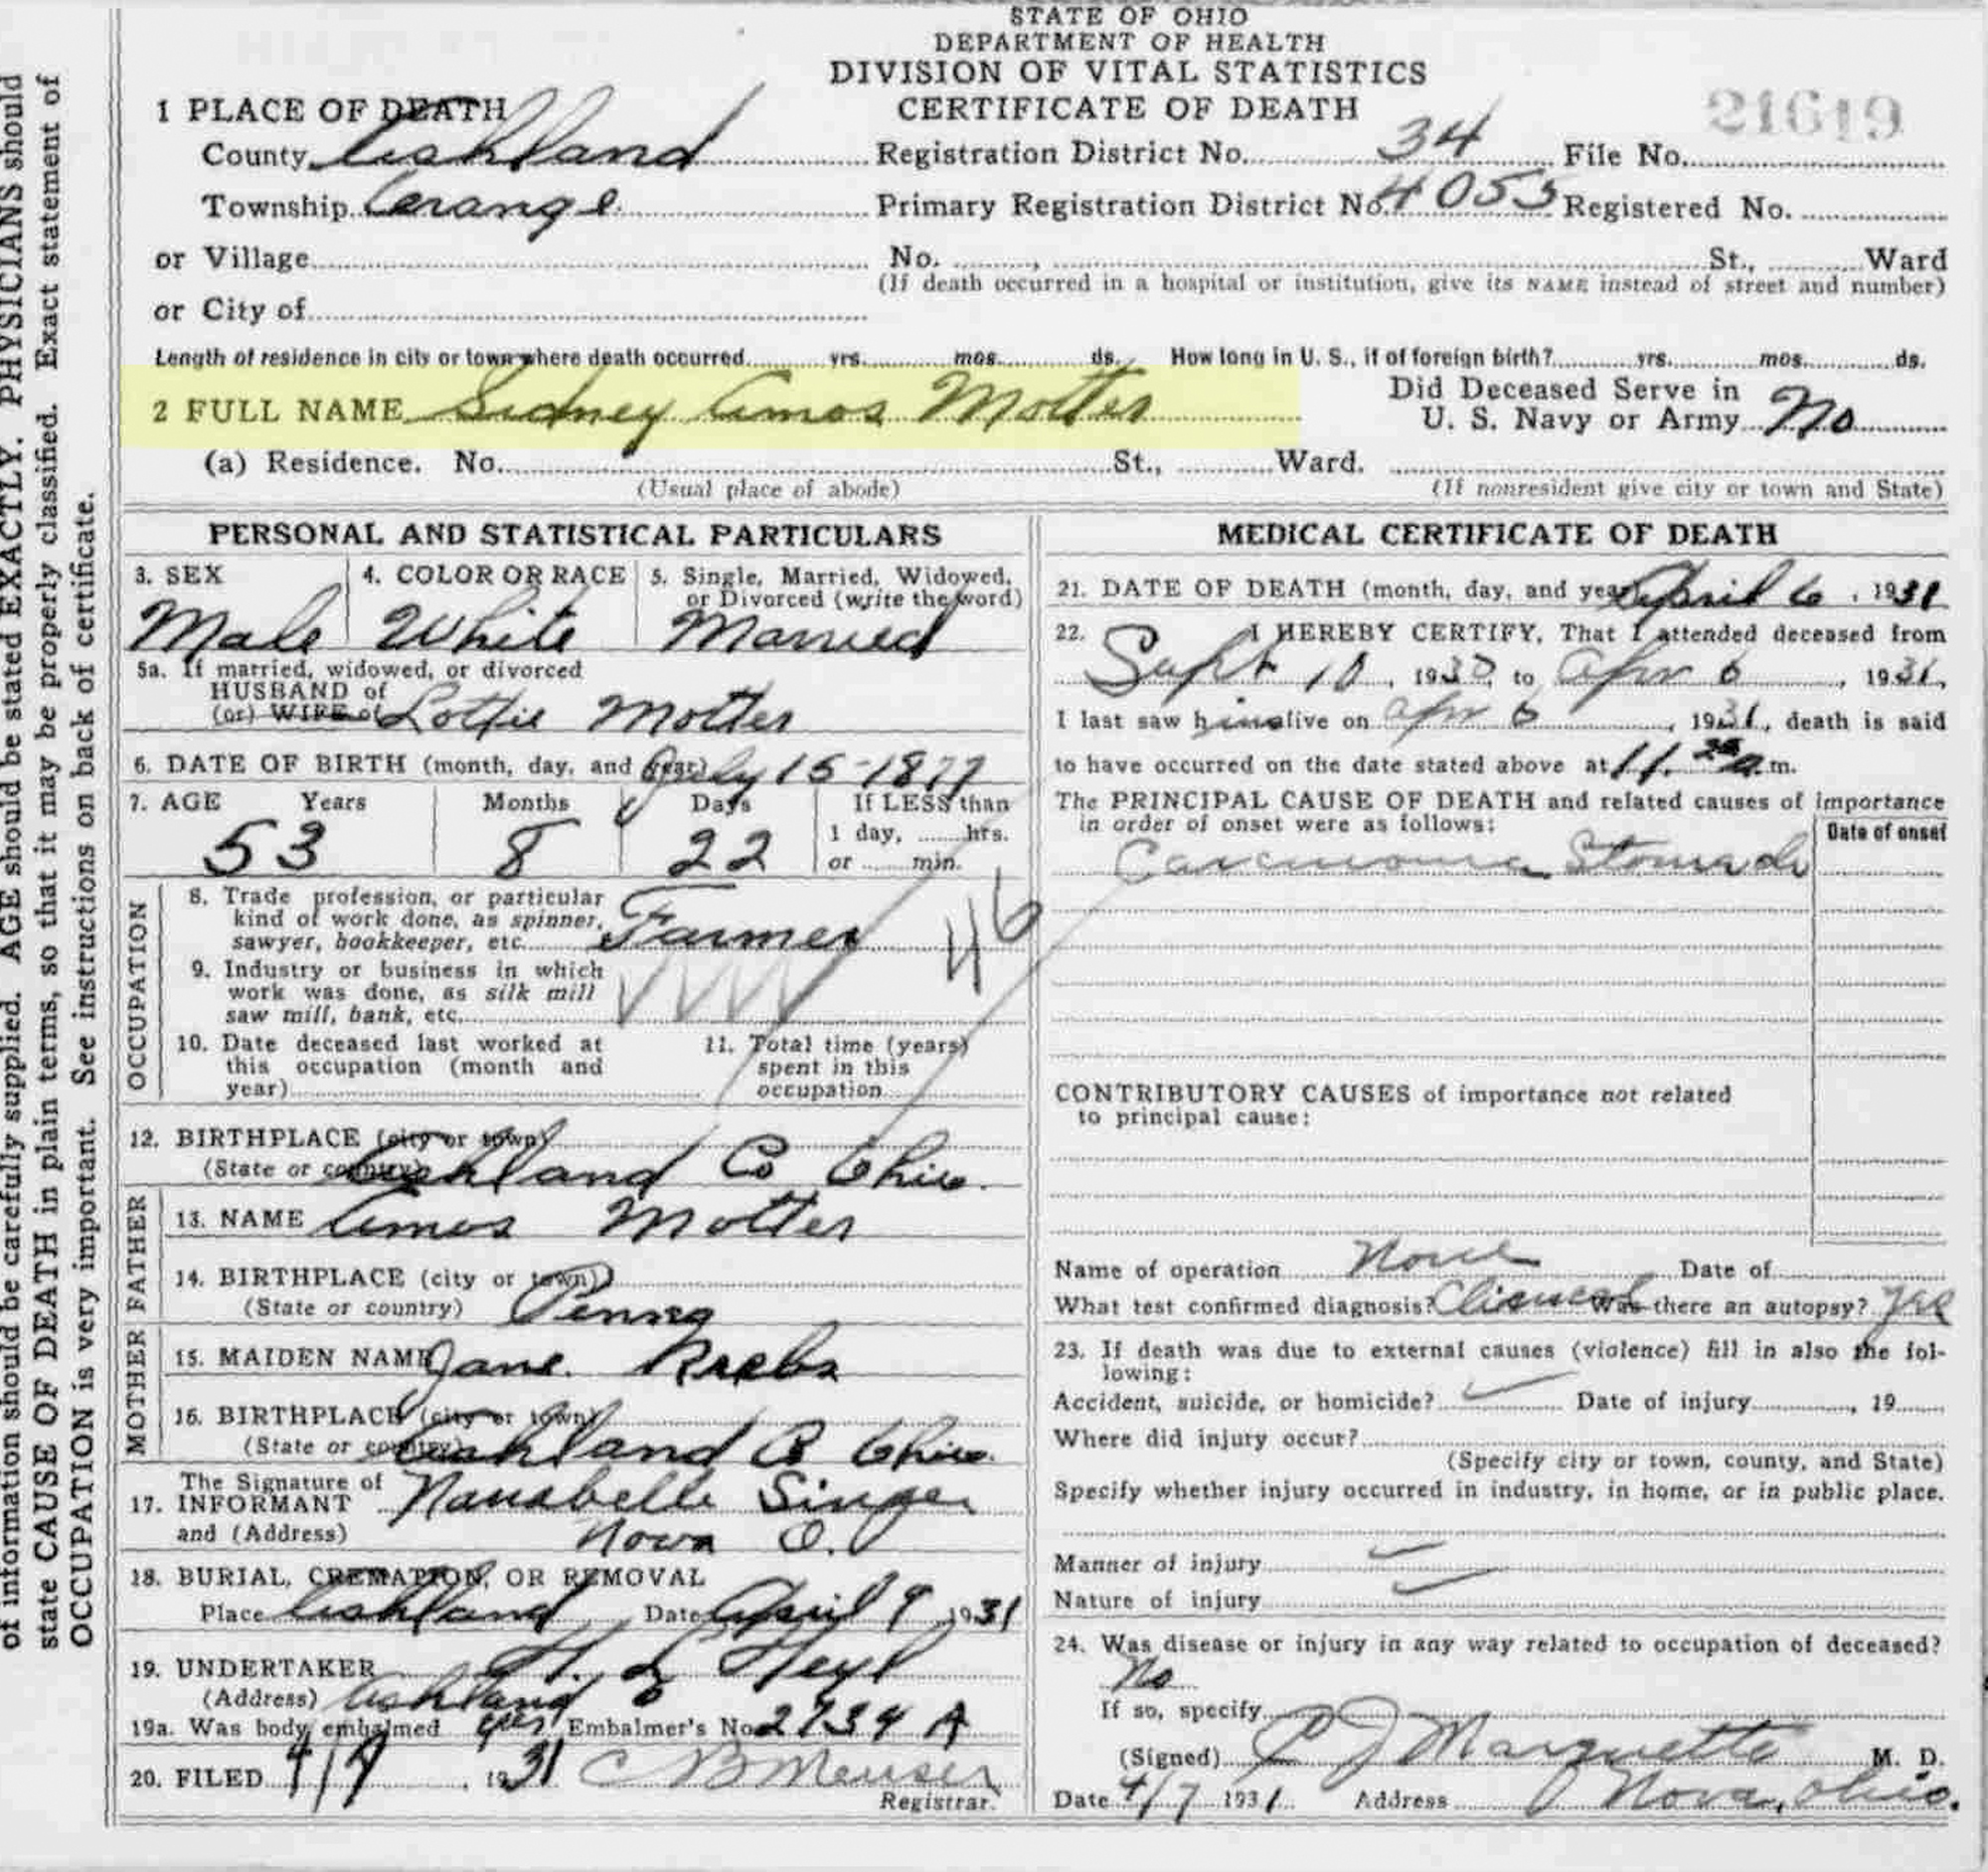 of information should be carefully supplied. AGE should be stated EXACTLY. PHYSICIANS should
state CAUSE OF DEATH in plain terms, so that it may be properly classified. Exact statement of
OCCUPATION is very important. See instructions on back of certificate.
STATE OF OHIO
DEPARTMENT OF HEALTH
DIVISION OF VITAL STATISTICS
CERTIFICATE OF DEATH
21619
1 PLACE OF DEATH
County Ashland Registration District No. 34 File No.
Township Orange Primary Registration District No. 4055 Registered No.
or Village No. , St., Ward
(If death occurred in a hospital or institution, give its NAME instead of street and number)
or City of
Length of residence in city or town where death occurred yrs. mos. ds. How long in U. S., if of foreign birth? yrs. mos. ds.
2 FULL NAME Sidney Amos Motter Did Deceased Serve in
U. S. Navy or Army No
(a) Residence. No. St., Ward.
(Usual place of abode) (If nonresident give city or town and State)
PERSONAL AND STATISTICAL PARTICULARS
3. SEX 4. COLOR OR RACE 5. Single, Married, Widowed,
or Divorced (write the word)
Male White Married
5a. If married, widowed, or divorced
HUSBAND of
(or) WIFE of Lottie Motter
6. DATE OF BIRTH (month, day, and year) July 15-1877
7. AGE Years Months Days If LESS than
1 day, hrs.
53 8 22 or min.
OCCUPATION
8. Trade profession, or particular
kind of work done, as spinner,
sawyer, bookkeeper, etc. Farmer
46
9. Industry or business in which
work was done, as silk mill
saw mill, bank, etc.
10. Date deceased last worked at
this occupation (month and
year)
11. Total time (years)
spent in this
occupation
12. BIRTHPLACE (city or town)
(State or country) Ashland Co Ohio.
FATHER
13. NAME Amos Motter
14. BIRTHPLACE (city or town)
(State or country) Penna
MOTHER
15. MAIDEN NAME Jane Krebs
16. BIRTHPLACE (city or town)
(State or country) Ashland Co Ohio.
The Signature of
17. INFORMANT Nanabelle Singer
and (Address) Nova O.
18. BURIAL, CREMATION, OR REMOVAL
Place Ashland Date April 9 1931
19. UNDERTAKER H. L Heyl
(Address) Ashland O
19a. Was body embalmed yes Embalmer's No. 2734 A
20. FILED 4/7, 1931 C B Meuser
Registrar.
MEDICAL CERTIFICATE OF DEATH
21. DATE OF DEATH (month, day, and year) April 6, 1931
22. I HEREBY CERTIFY, That I attended deceased from
Sept 10, 1930, to Apr 6, 1931,
I last saw him alive on Apr 6, 1931, death is said
to have occurred on the date stated above at 11. a.m.
The PRINCIPAL CAUSE OF DEATH and related causes of importance
in order of onset were as follows:
Date of onset
Carcinoma Stomach
CONTRIBUTORY CAUSES of importance not related
to principal cause:
Name of operation None Date of
What test confirmed diagnosis? Clinical Was there an autopsy? yes
23. If death was due to external causes (violence) fill in also the fol-
lowing:
Accident, suicide, or homicide? Date of injury , 19
Where did injury occur?
(Specify city or town, county, and State)
Specify whether injury occurred in industry, in home, or in public place.
Manner of injury
Nature of injury
24. Was disease or injury in any way related to occupation of deceased?
No
If so, specify
(Signed) J Marquette M. D.
Date 4/7 1931 Address Nova, Ohio.